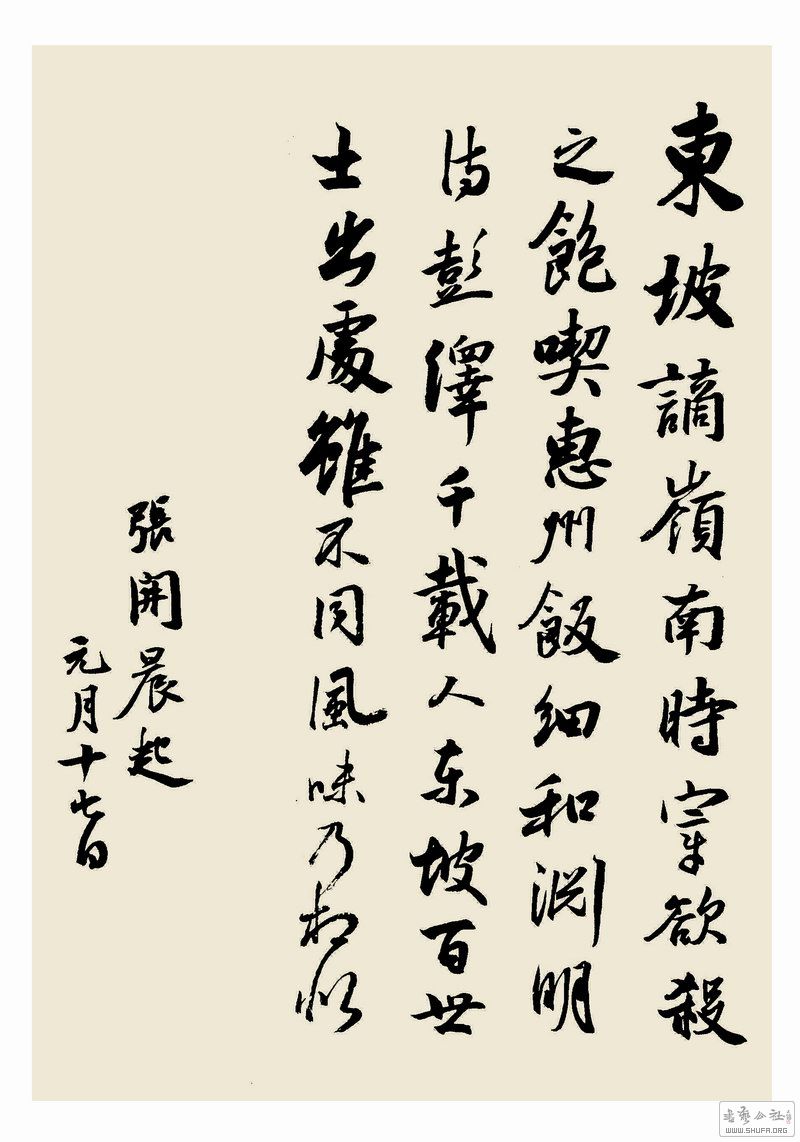 東坡謫嶺南時宰欲殺
之飽喫惠州飯細和淵明
詩彭澤千載人东坡百世
士出處雖不同風味乃相似
張開晨起
元月十七日
書藝公社
WWW.SHUFA.ORG